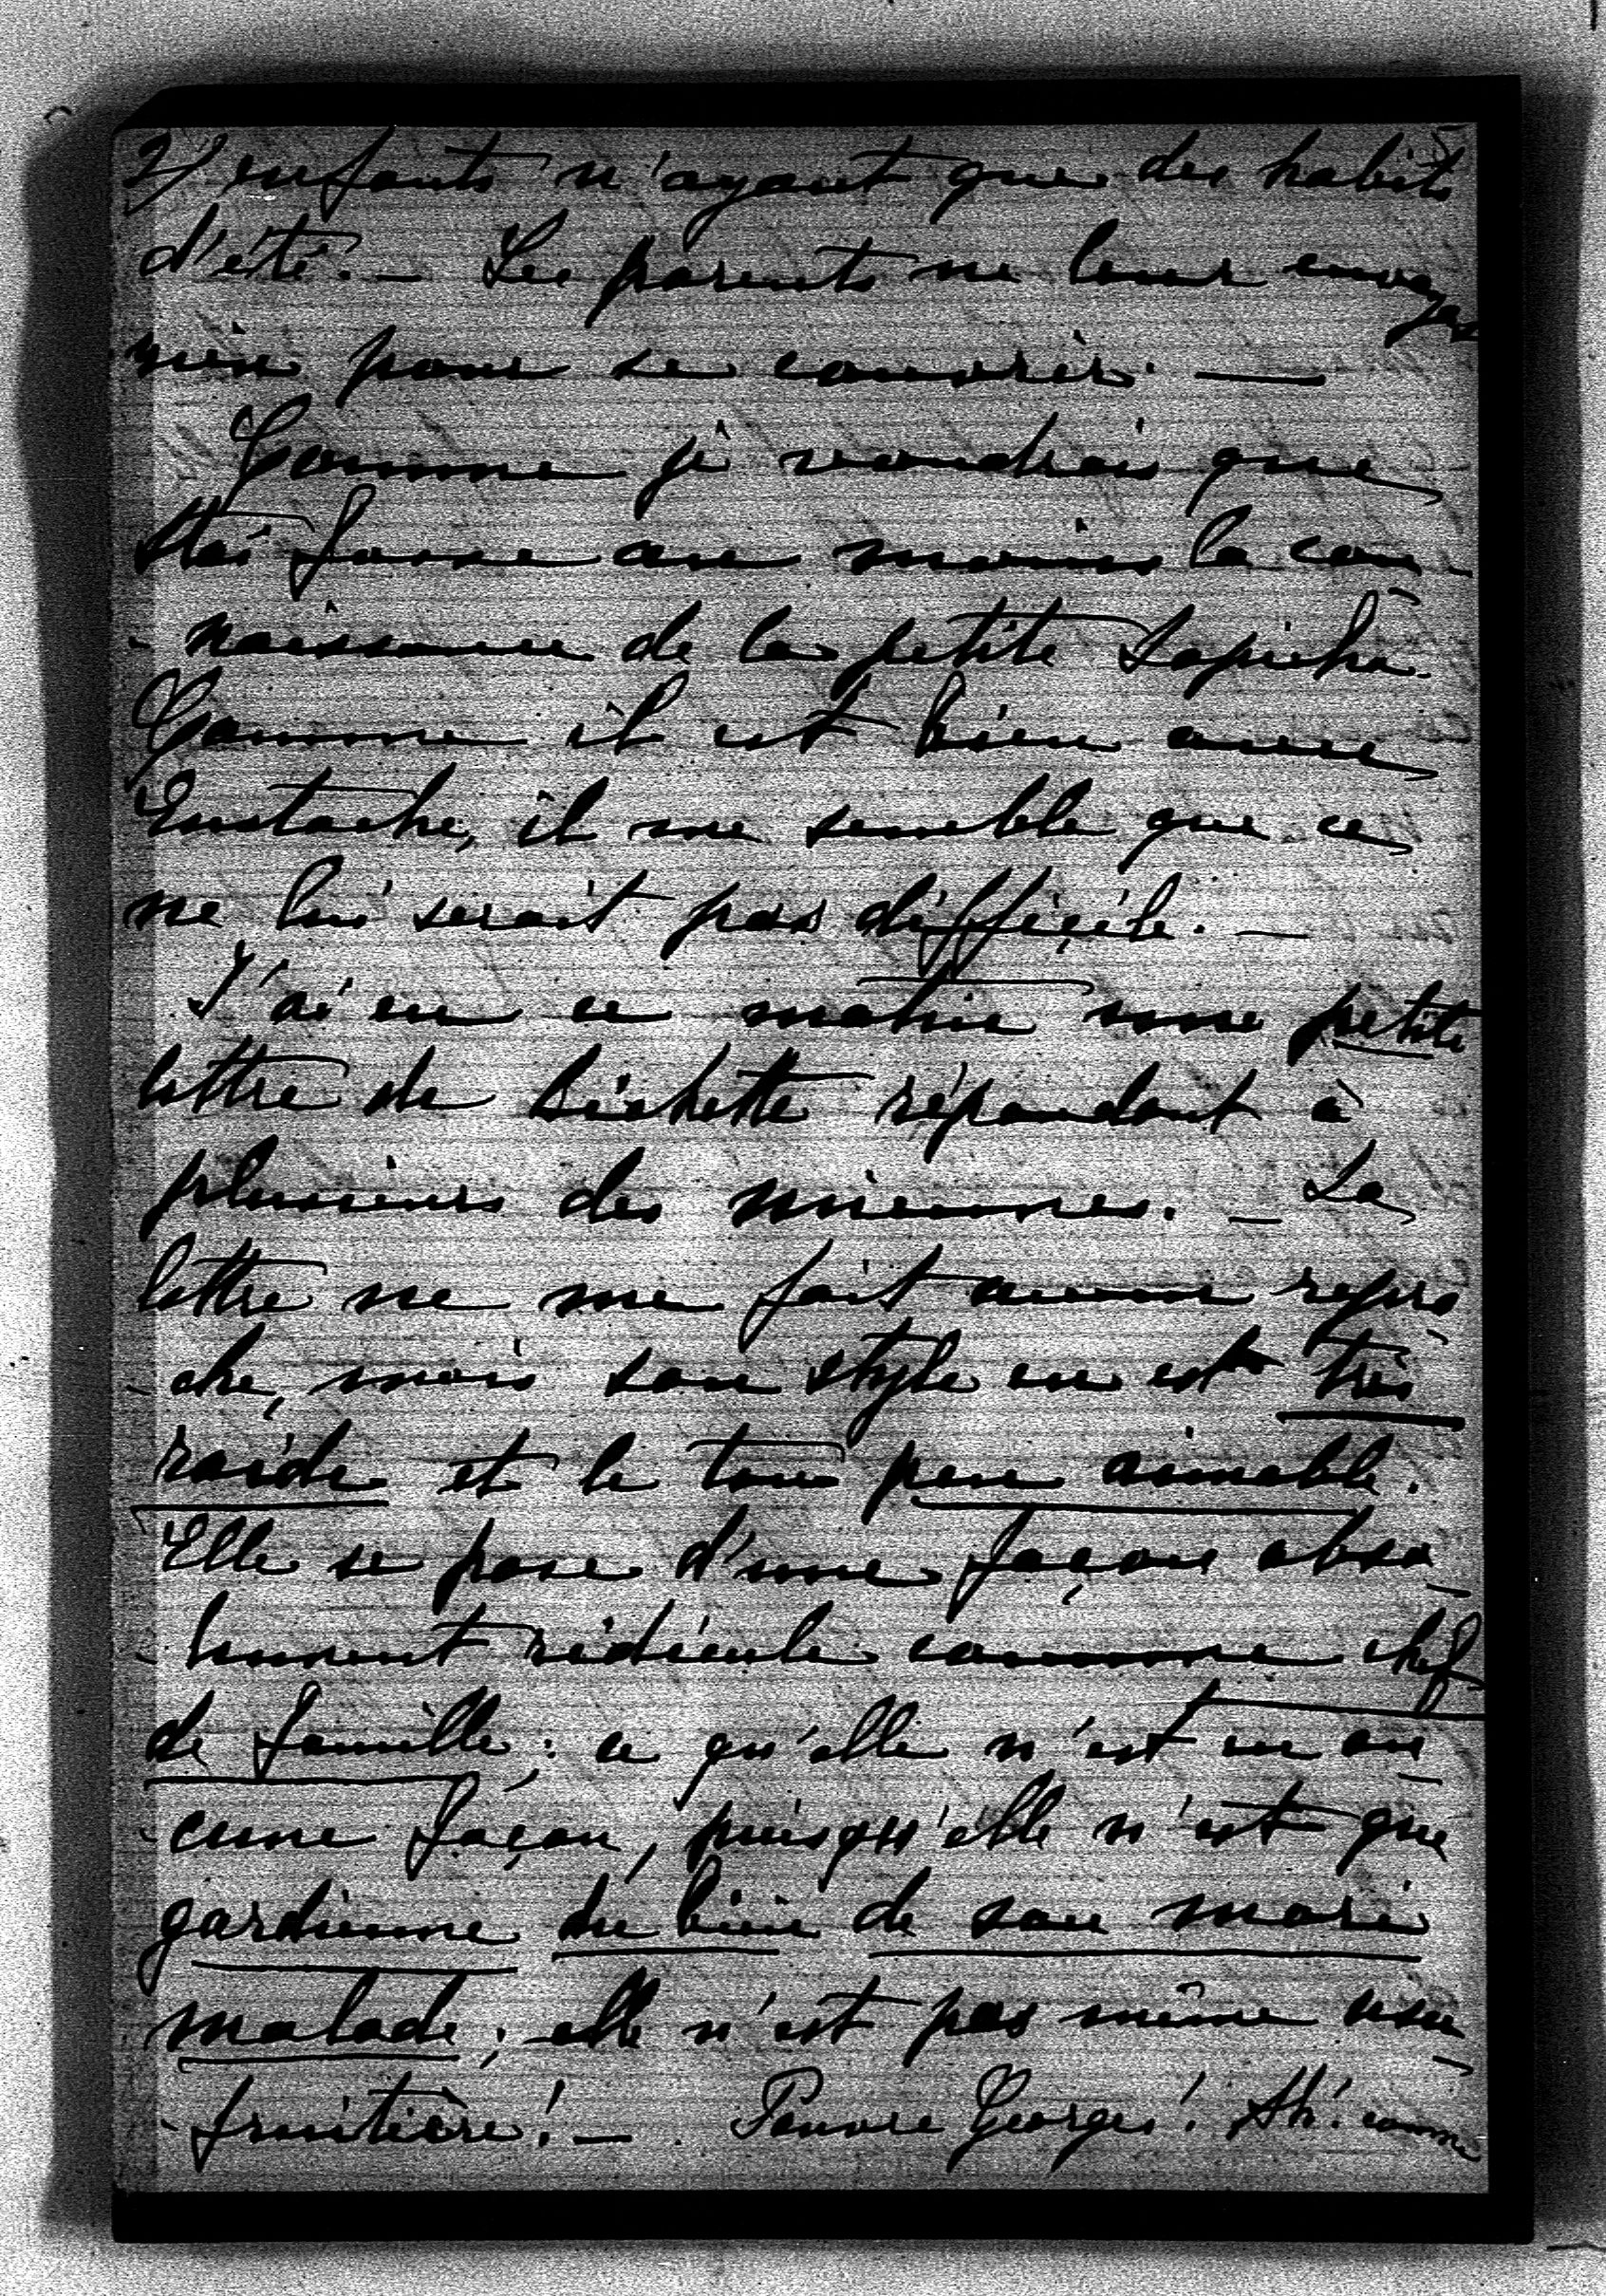 2/ enfants n'ayant que des habits
d'été. — Les parents ne leur envoyant
rien pour se couvrir. —
Comme je voudrais que
fasse au moins la con-
-naissance de la petite
Comme il est bien avec
Eustache, il me semble que ce
ne lui serait pas difficile. —
J'ai eu ce matin une petite
lettre de Bichette répondant à
plusieurs des miennes. — La
lettre ne me fait aucun repro
-che, mais son style en est très
raide et le ton peu aimable.
Elle se pose d'une façon abso-
-lument ridicule comme chef
de famille; ce qu'elle n'est en au-
-cune façon, puisqu'elle n'est que
gardienne du bien de son mari
malade; elle n'est pas même usu-
-fruitière! — Pauvre Georges! Ah! comme